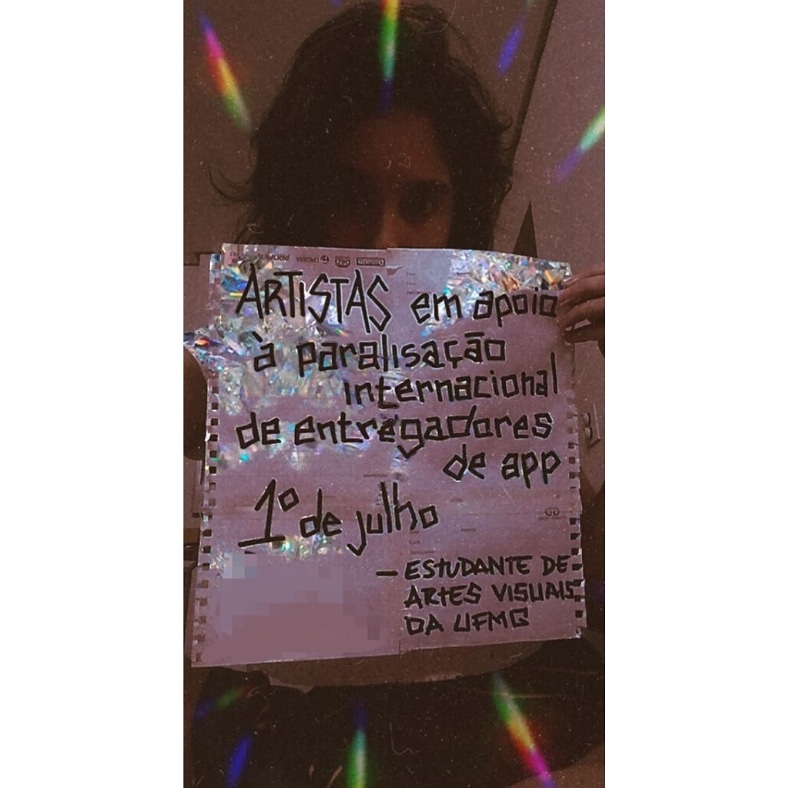 ARTISTAS em apoio
à paralisação
internacional
de entregadores
de app
1º de julho
— ESTUDANTE DE
ARTES VISUAIS
DA UFMG